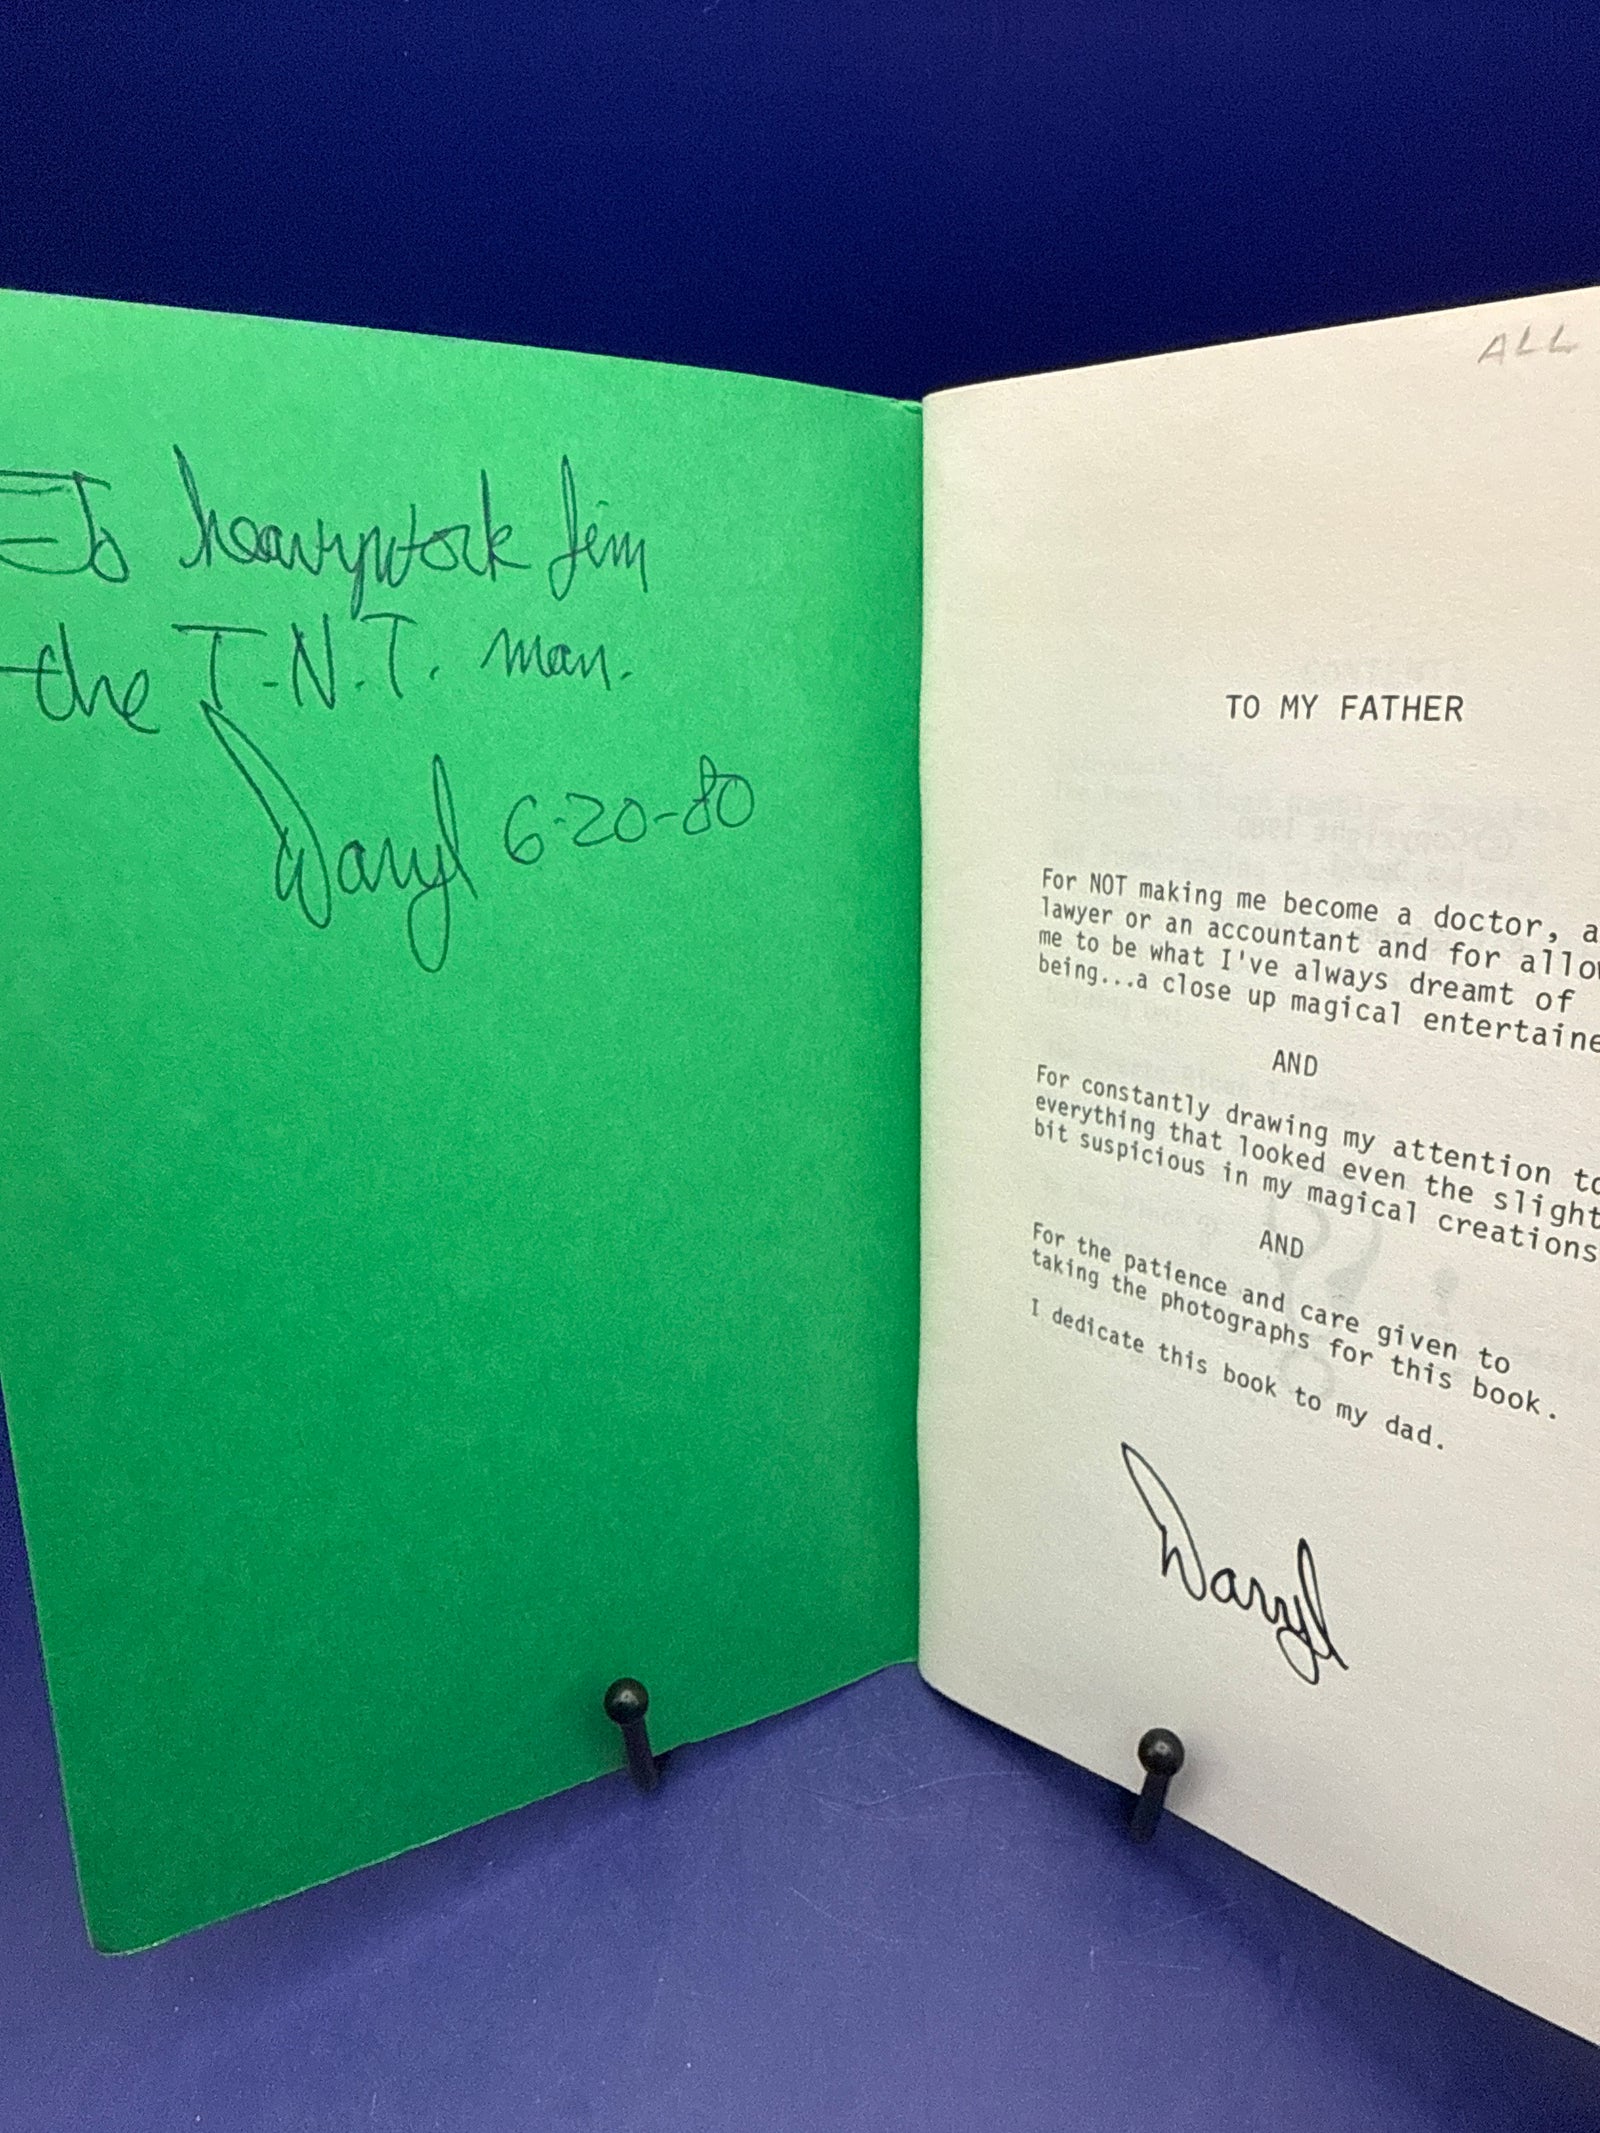 To heavywork Jim
the T.N.T. man.
Daryl 6-20-80
ALL
TO MY FATHER
For NOT making me become a doctor, a
lawyer or an accountant and for allow
me to be what I've always dreamt of
being...a close up magical entertaine
AND
For constantly drawing my attention to
everything that looked even the slight
bit suspicious in my magical creations
AND
For the patience and care given to
taking the photographs for this book.
I dedicate this book to my dad.
Daryl